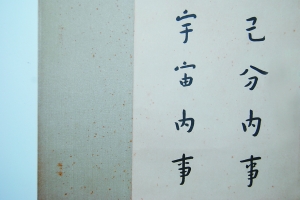 己分内事
宇宙内事